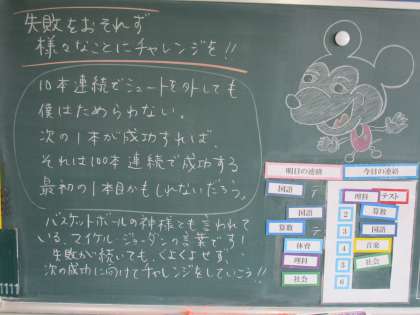 失敗をおそれず
様々なことにチャレンジを!!
10本連続でシュートを外しても
僕はためらわない。
次の1本が成功すれば、
それは100本連続で成功する
最初の1本目かもしれないだろう。
バスケットボールの神様とも言われて
いる、マイケル・ジョーダンの言葉です!
失敗が続いても、くよくよせず、
次の成功に向けてチャレンジをしていこう!!
明日の連絡
国語 テ
国語
算数 テ
体育
理科
社会
今日の連絡
理科 テスト
2 算数
3 国語
4 音楽
5 社会
6